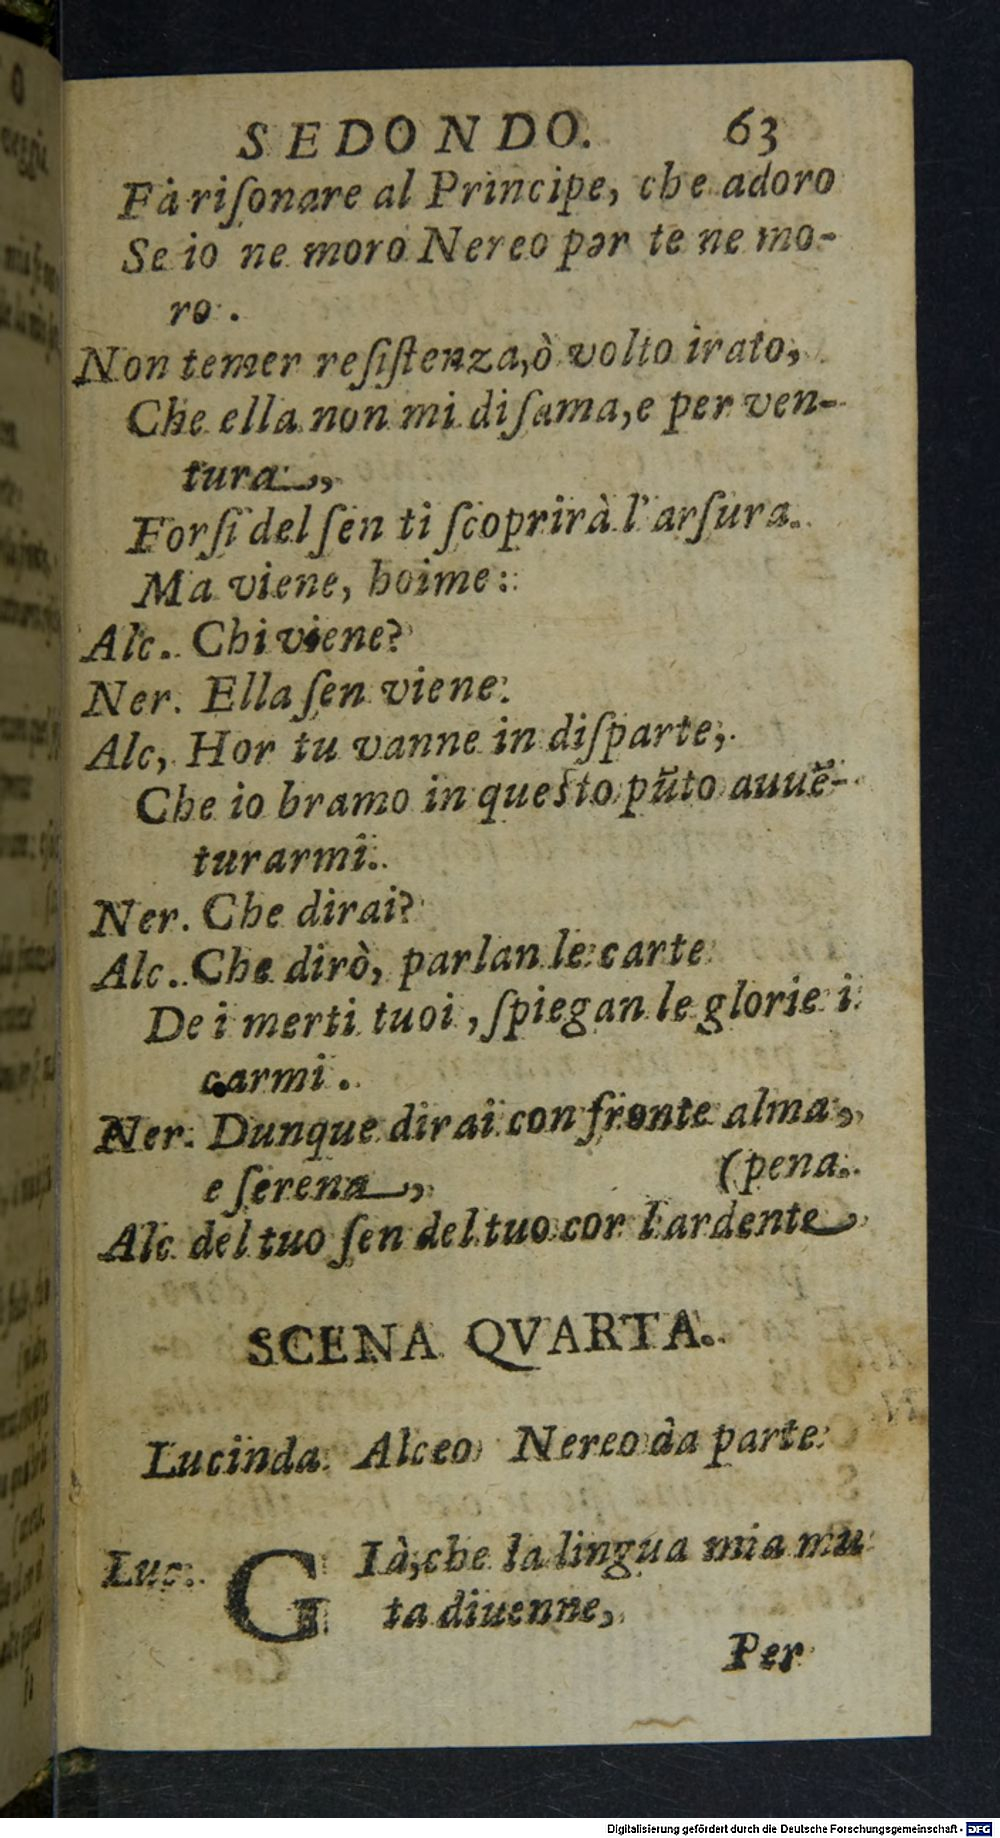 SEDONDO. 63
Fà riſonare al Principe, che adoro
Se io ne moro Nereo pǝr te ne mo-
ro.
Non temer reſiſtenza, ò volto irato,
Che ella non mi diſama, e per ven-
tura,
Forſi del ſen ti ſcoprirà l'arſura.
Ma viene, hoime:
Alc. Chi viene?
Ner. Ella ſen viene.
Alc, Hor tu vanne in diſparte,
Che io bramo in queſto pũto auuẽ-
turarmi.
Ner. Che dirai?
Alc. Che dirò, parlan le carte
De i merti tuoi, ſpiegan le glorie i
carmi.
Ner. Dunque dirai con fronte alma,
e ſerena, (pena.
Alc del tuo ſen del tuo cor l'ardente
SCENA QVARTA.
Lucinda Alceo Nereo da parte.
Luc. GIà, che la lingua mia mu
ta diuenne,
Per
Digitalisierung gefördert durch die Deutsche Forschungsgemeinschaft - DFG